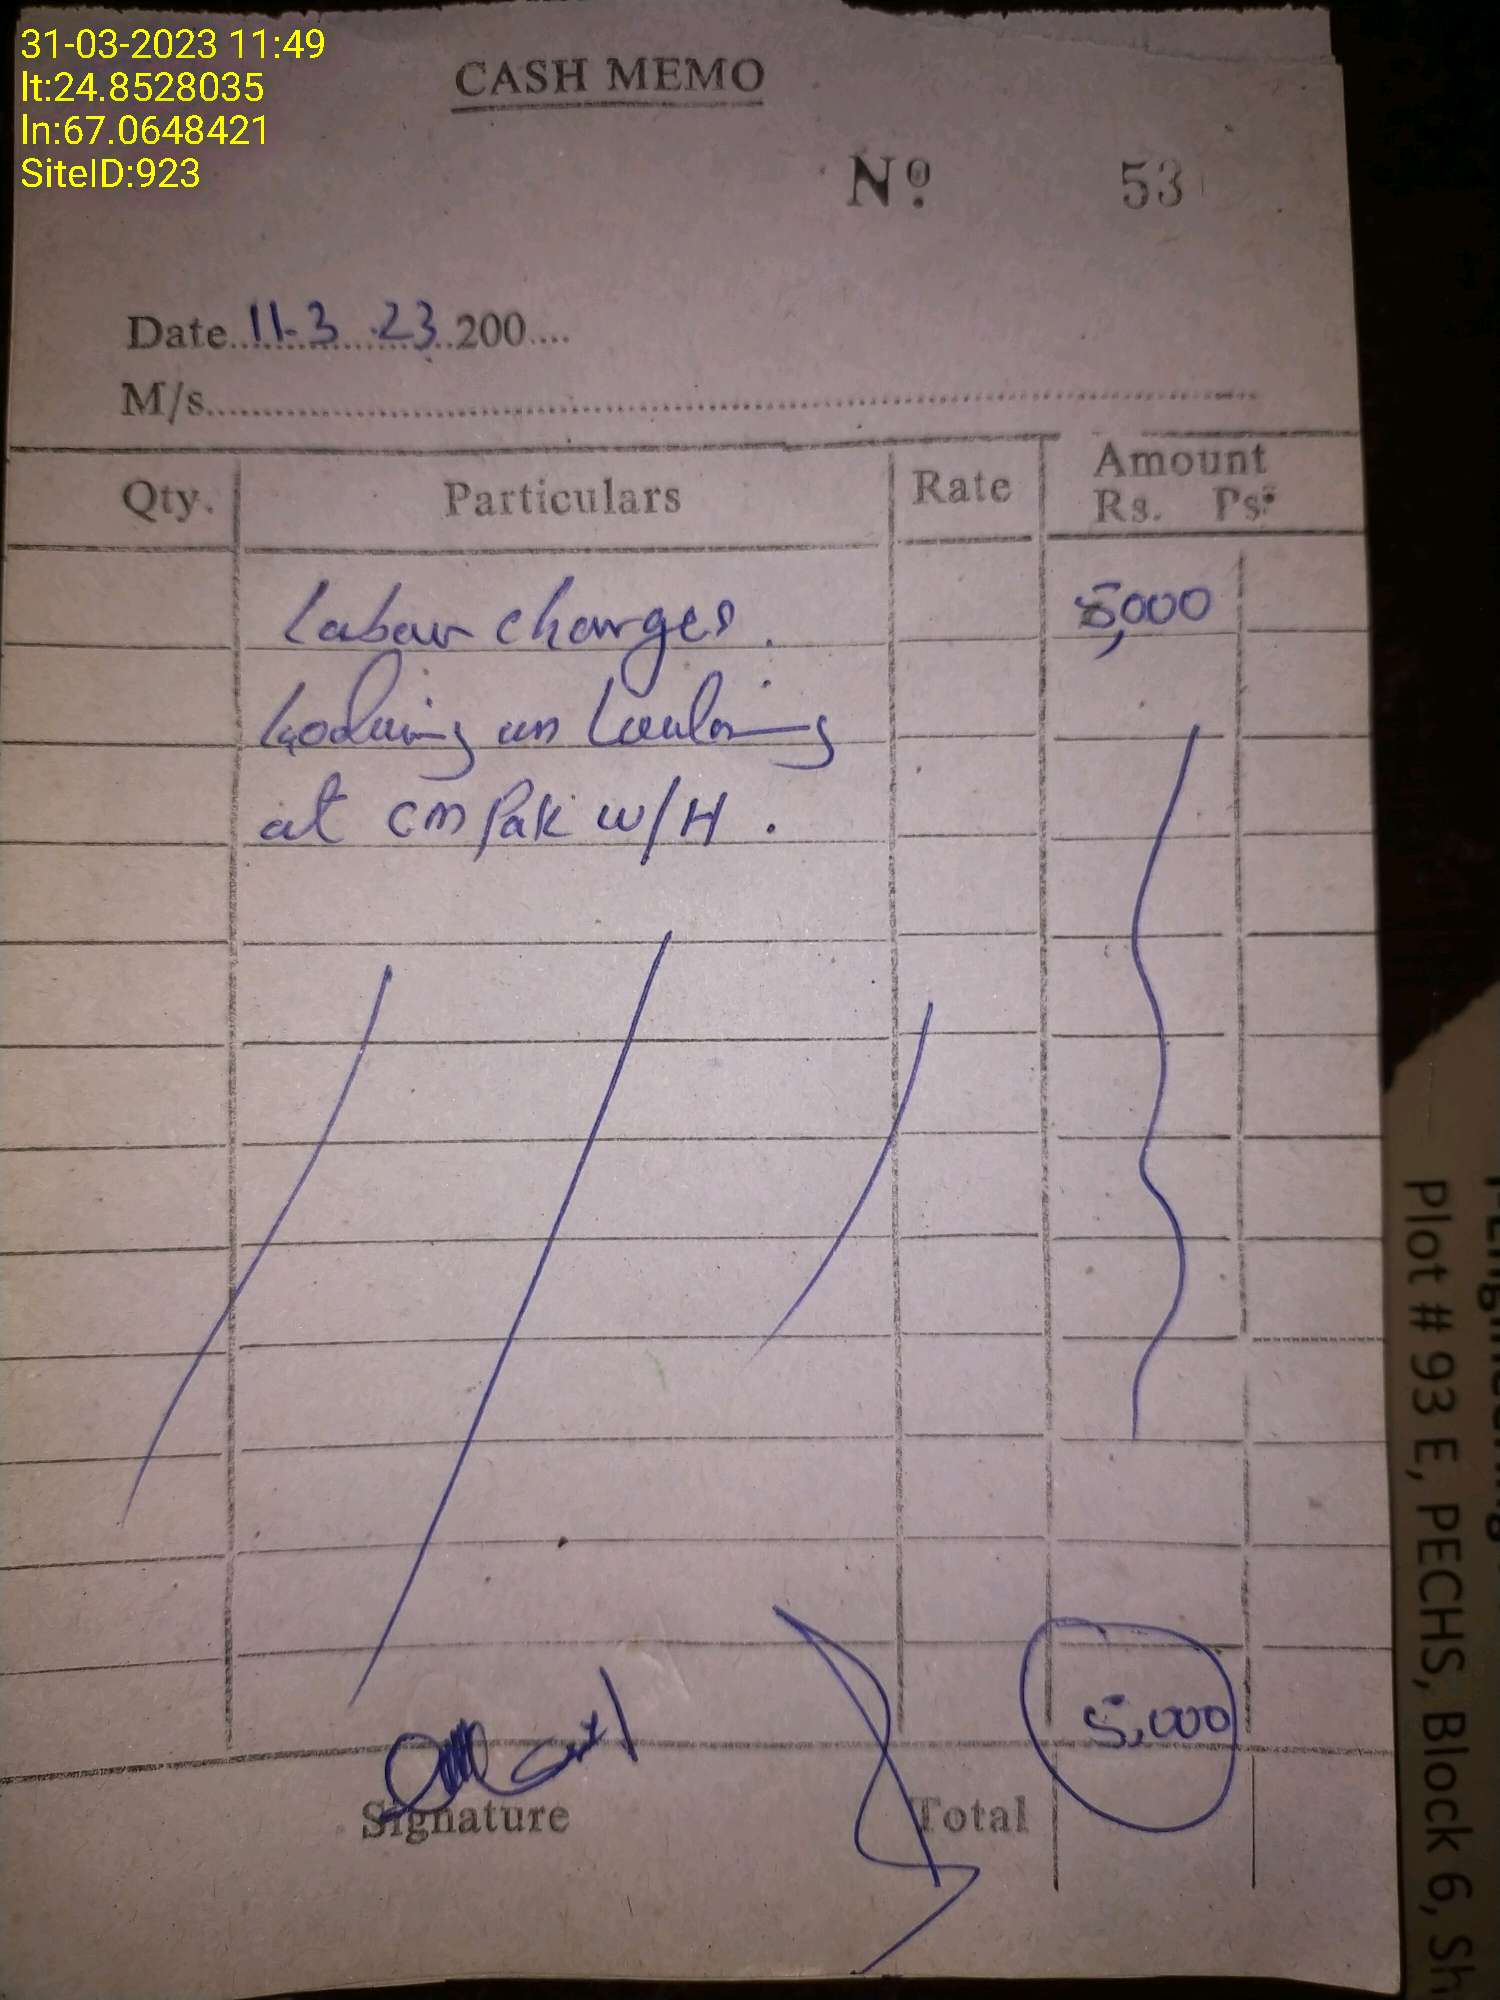 31-03-2023 11:49
lt:24.8528035
ln:67.0648421
SiteID:923
CASH MEMO
Nº 53
Date 11-3.23 200....
M/s.
Qty. Particulars Rate Amount
Rs. Ps.
Labour charges. 5,000
at cm Pak W/H.
5,000
Signature Total
Plot # 93 E, PECHS, Block 6, Sh